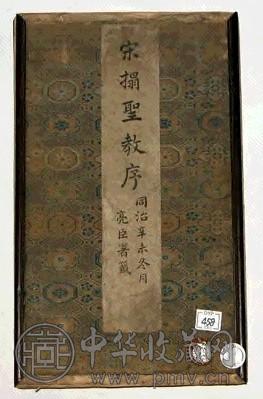 宋搨聖教序
同治辛未冬月
亮臣署籖
DYP
459
中华收藏网
www.pmv.cn